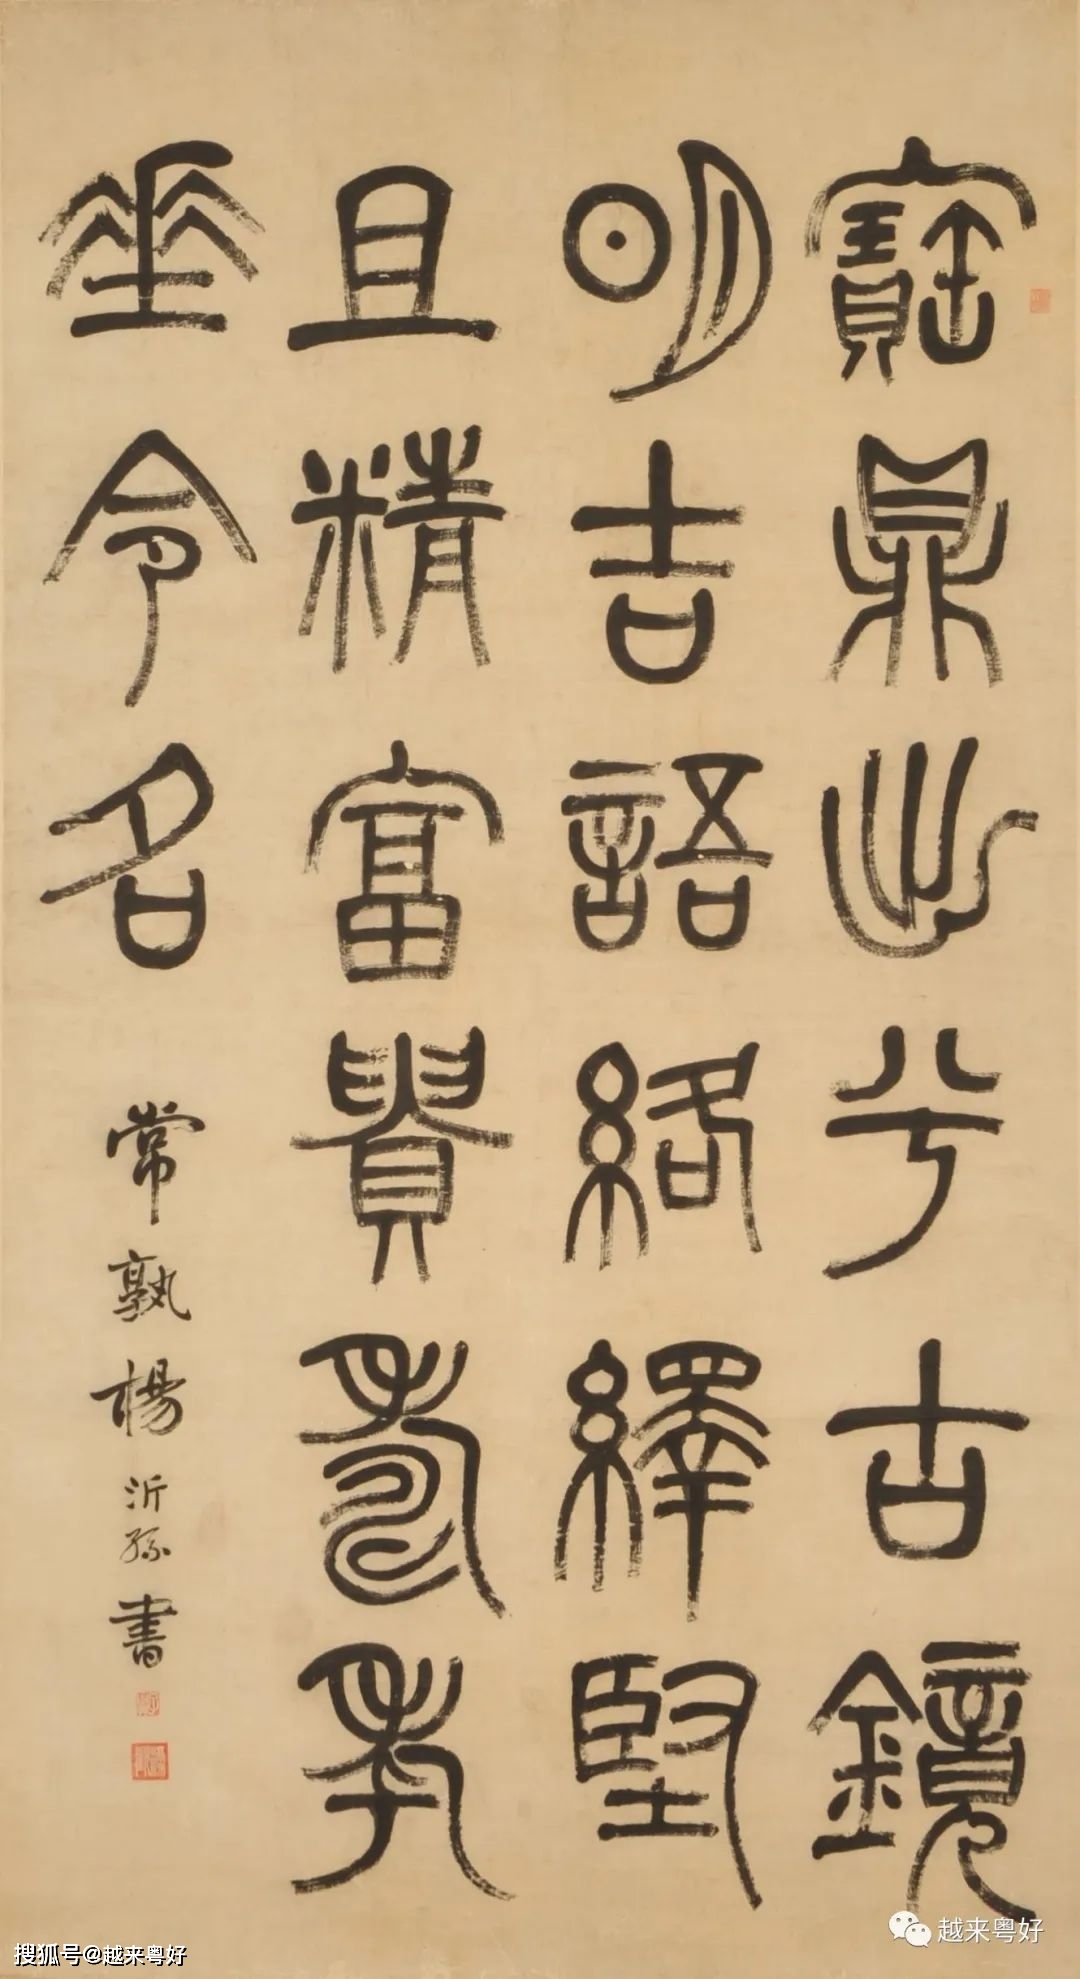 寶鼎出兮古鏡
明吉語絡繹堅
且精富貴壽考
垂令名
常孰楊沂孫書
越来粤好
搜狐号@越来粤好